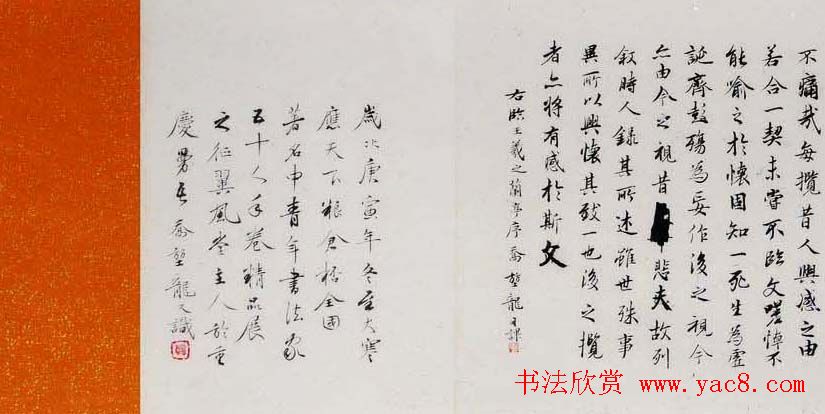 不痛哉每攬昔人興感之由
若合一契未嘗不臨文嗟悼不
能喻之於懷固知一死生為虛
誕齊彭殤為妄作後之視今
亦由今之視昔悲夫故列
敘時人錄其所述雖世殊事
異所以興懷其致一也後之攬
者亦將有感於斯文
右臨王羲之蘭亭序
歲次庚寅年冬至大寒
應天下糧倉全國
著名中青年書法家
五十人手卷精品展
之征翼風堂主人於重
慶龍又識
书法欣赏 www.yac8.com